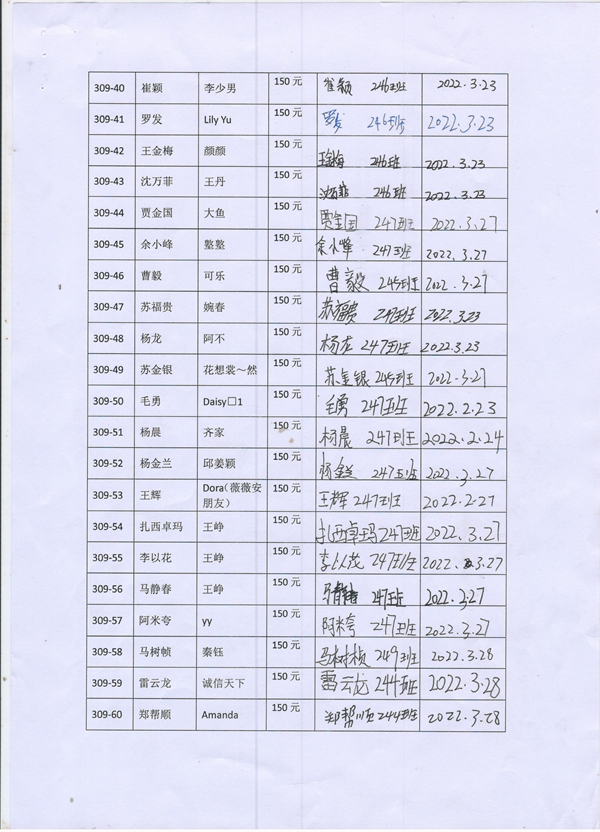 309-40 崔颖 李少男 150元 崔颖 246班 2022.3.23
309-41 罗发 Lily Yu 150元 罗发 246班 2022.3.23
309-42 王金梅 颜颜 150元 王金梅 246班 2022.3.23
309-43 沈万菲 王丹 150元 沈万菲 246班 2022.3.23
309-44 贾金国 大鱼 150元 贾金国 247班 2022.3.27
309-45 余小峰 整整 150元 余小峰 247班 2022.3.27
309-46 曹毅 可乐 150元 曹毅 245班 2022.3.27
309-47 苏福贵 婉春 150元 苏福贵 247班 2022.3.23
309-48 杨龙 阿不 150元 杨龙 247班 2022.3.23
309-49 苏金银 花想裳～然 150元 苏金银 245班 2022.3.27
309-50 毛勇 Daisy□1 150元 毛勇 247班 2022.2.23
309-51 杨晨 齐家 150元 杨晨 247班 2022.2.24
309-52 杨金兰 邱姜颖 150元 杨金兰 247班 2022.3.27
309-53 王辉 Dora（薇薇安 150元 王辉 247班 2022.2.27
朋友）
309-54 扎西卓玛 王峥 150元 扎西卓玛 247班 2022.3.27
309-55 李以花 王峥 150元 李以花 247班 2022.3.27
309-56 马静春 王峥 150元 马静春 247班 2022.3.27
309-57 阿米夸 yy 150元 阿米夸 247班 2022.3.27
309-58 马树帧 秦钰 150元 马树桢 249班 2022.3.28
309-59 雷云龙 诚信天下 150元 雷云龙 244班 2022.3.28
309-60 郑帮顺 Amanda 150元 郑帮顺 244班 2022.3.28